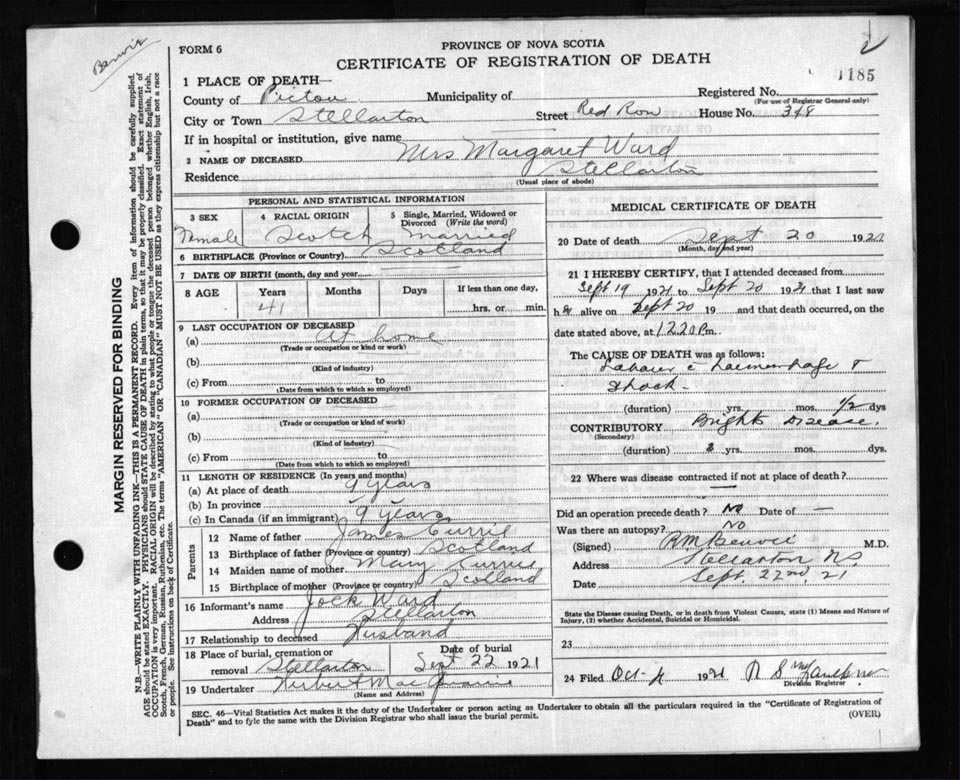 Barwis
FORM 6
PROVINCE OF NOVA SCOTIA
CERTIFICATE OF REGISTRATION OF DEATH
2
1185
1 PLACE OF DEATH—
County of Pictou Municipality of Registered No.
(For use of Registrar General only)
City or Town Stellarton Street Red Row House No. 348
If in hospital or institution, give name
2 NAME OF DECEASED Mrs Margaret Ward
Residence Stellarton
(Usual place of abode)
PERSONAL AND STATISTICAL INFORMATION
3 SEX 4 RACIAL ORIGIN 5 Single, Married, Widowed or Divorced (Write the word)
Female Scotch Married
6 BIRTHPLACE (Province or Country) Scotland
7 DATE OF BIRTH (month, day and year)
8 AGE Years Months Days If less than one day,
41 hrs. or min.
9 LAST OCCUPATION OF DECEASED
(a) At home
(Trade or occupation or kind or work)
(b)
(Kind of industry)
(c) From to
(Date from which to which so employed)
10 FORMER OCCUPATION OF DECEASED
(a)
(Trade or occupation or kind of work)
(b)
(Kind of industry)
(c) From to
(Date from which to which so employed)
11 LENGTH OF RESIDENCE (In years and months)
(a) At place of death 9 years
(b) In province
(c) In Canada (if an immigrant) 9 years
Parents
12 Name of father James Currie
13 Birthplace of father (Province or country) Scotland
14 Maiden name of mother Mary Currie
15 Birthplace of mother (Province or country) Scotland
16 Informant's name Jock Ward
Address Stellarton
17 Relationship to deceased Husband
18 Place of burial, cremation or removal Stellarton
Date of burial Sept 22 1921
19 Undertaker Herbert Mac
(Name and Address)
MEDICAL CERTIFICATE OF DEATH
20 Date of death Sept 20 1921
(Month, day and year)
21 I HEREBY CERTIFY, that I attended deceased from
Sept 19 1921 to Sept 20 1921 that I last saw
h er alive on Sept 20 19 and that death occurred, on the
date stated above, at 12.20 P.m.
The CAUSE OF DEATH was as follows:
Labour c haemorrhage &
Shock
(duration) yrs. mos. 1/2 dys
CONTRIBUTORY Brights Disease.
(Secondary)
(duration) yrs. mos. dys.
22 Where was disease contracted if not at place of death?
Did an operation precede death? No Date of —
Was there an autopsy? No
(Signed) M.D.
Address Stellarton NS
Date Sept. 22nd, 21
State the Disease causing Death, or in death from Violent Causes, state (1) Means and Nature of
Injury, (2) whether Accidental, Suicidal or Homicidal.
23
24 Filed Oct 1921
Division Registrar
SEC. 46—Vital Statistics Act makes it the duty of the Undertaker or person acting as Undertaker to obtain all the particulars required in the "Certificate of Registration of
Death" and to fyle the same with the Division Registrar who shall issue the burial permit.
(OVER)
MARGIN RESERVED FOR BINDING
N.B.—WRITE PLAINLY WITH UNFADING INK—THIS IS A PERMANENT RECORD. Every item of information should be carefully supplied.
AGE should be stated EXACTLY. PHYSICIANS should STATE CAUSE OF DEATH in plain terms, so that it may be properly classified. Exact statement of
OCCUPATION is very important. RACIAL ORIGIN will be described by stating to what people or tongue the deceased person belonged whether English, Irish,
Scotch, French, German, Russian, Ruthenian, etc. The terms "AMERICAN" OR "CANADIAN" MUST NOT BE USED as they express citizenship but not a race
or people. See instructions on back of Certificate.